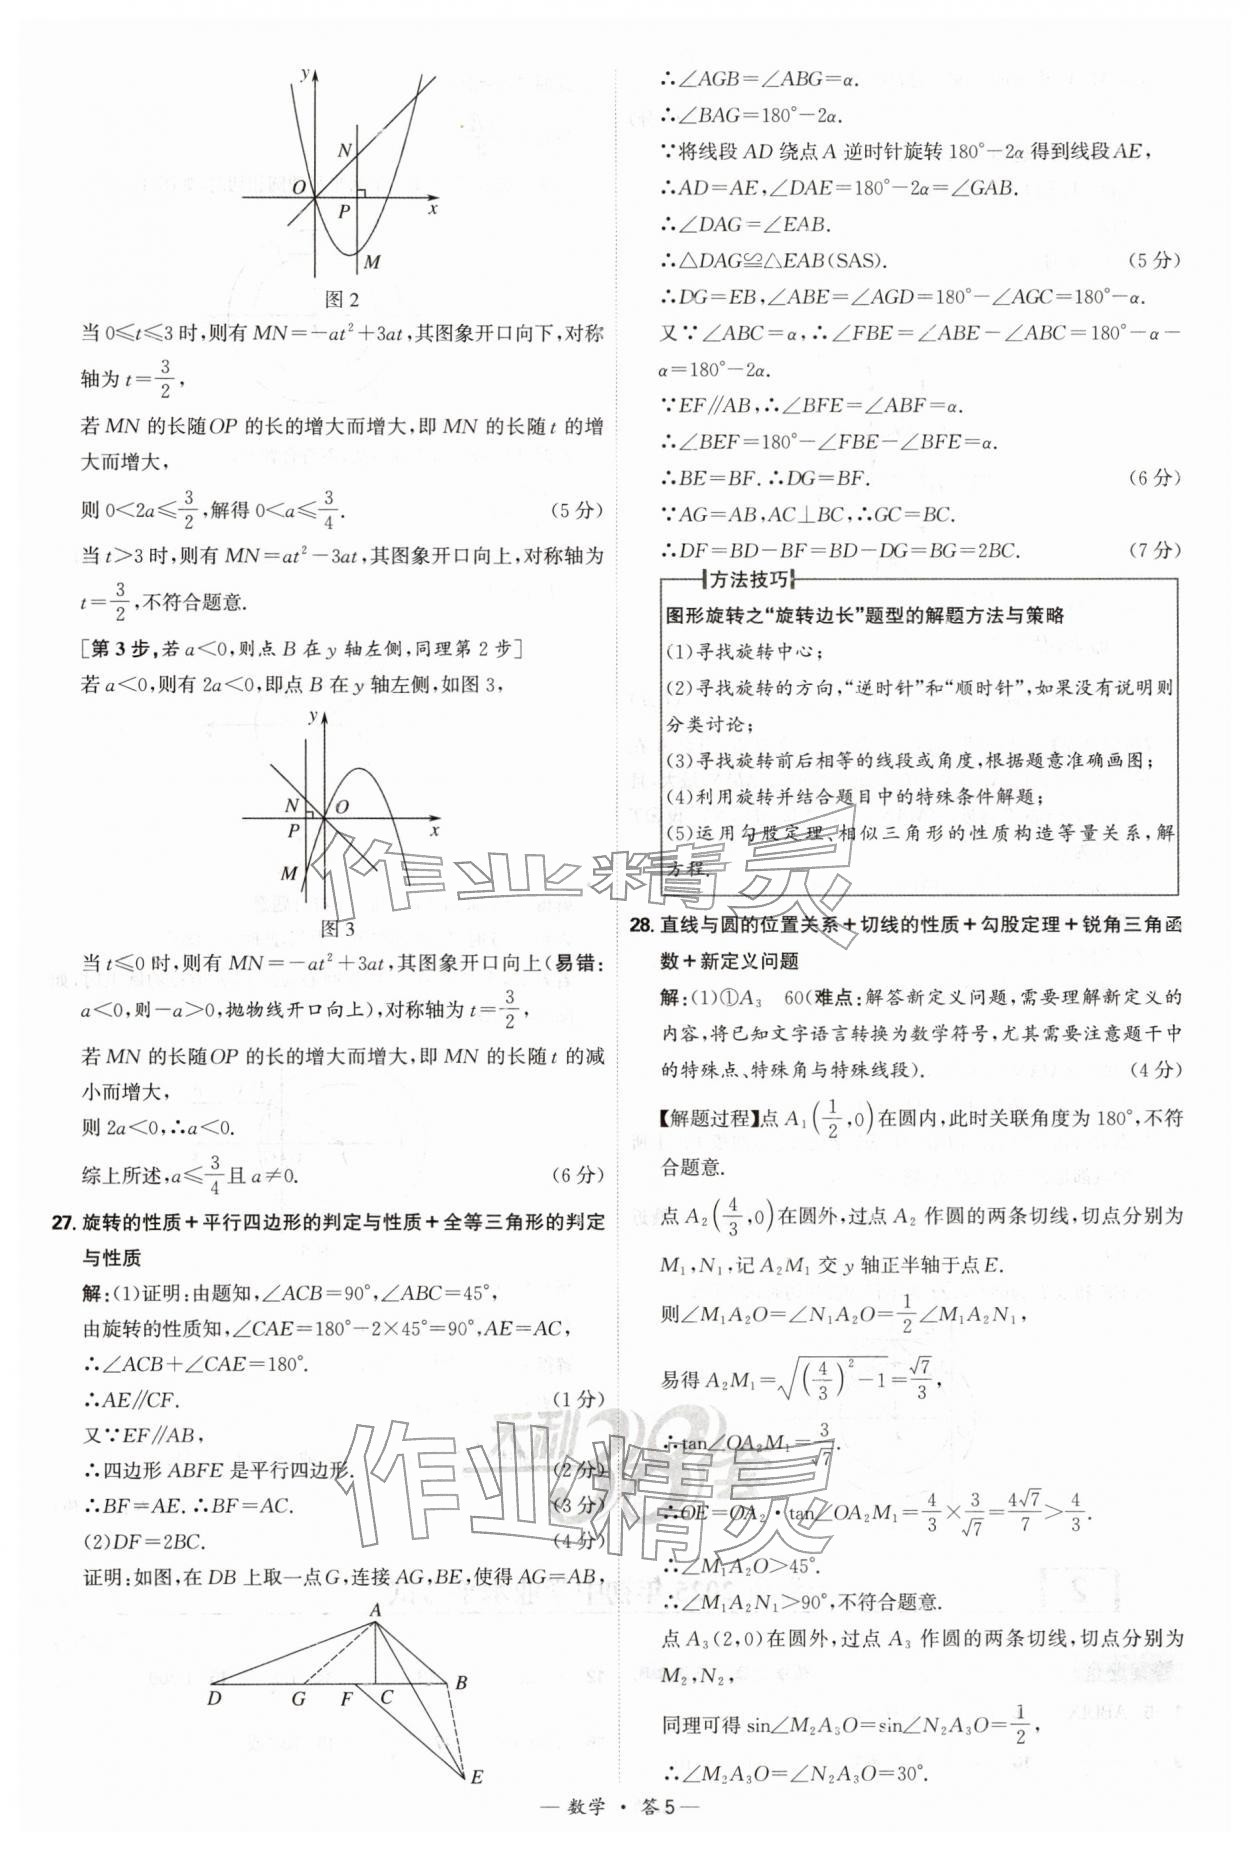 y
N
O
P
x
M
图 2
当 0≤t≤3 时,则有 MN=-at²+3at,其图象开口向下,对称
轴为 t=3/2,
若 MN 的长随OP 的长的增大而增大,即 MN 的长随 t 的增
大而增大,
则 0<2a≤3/2,解得 0<a≤3/4. (5 分)
当 t>3 时,则有 MN=at²-3at,其图象开口向上,对称轴为
t=3/2,不符合题意.
[第 3 步,若 a<0,则点 B 在 y 轴左侧,同理第 2 步]
若 a<0,则有 2a<0,即点 B 在 y 轴左侧,如图 3,
y
N
O
P
x
M
图 3
当 t≤0 时,则有 MN=-at²+3at,其图象开口向上(易错:
a<0,则-a>0,抛物线开口向上),对称轴为 t=3/2,
若 MN 的长随OP 的长的增大而增大,即 MN 的长随 t 的减
小而增大,
则 2a<0,∴a<0.
综上所述,a≤3/4且 a≠0. (6 分)
27. 旋转的性质+平行四边形的判定与性质+全等三角形的判定
与性质
解:(1)证明:由题知,∠ACB=90°,∠ABC=45°,
由旋转的性质知,∠CAE=180°-2×45°=90°,AE=AC,
∴∠ACB+∠CAE=180°.
∴AE∥CF. (1 分)
又∵EF∥AB,
∴四边形 ABFE 是平行四边形. (2 分)
∴BF=AE.∴BF=AC. (3 分)
(2)DF=2BC. (4 分)
证明:如图,在 DB 上取一点G,连接 AG,BE,使得 AG=AB,
A
D G F C B
E
∴∠AGB=∠ABG=α.
∴∠BAG=180°-2α.
∵将线段 AD 绕点 A 逆时针旋转 180°-2α 得到线段AE,
∴AD=AE,∠DAE=180°-2α=∠GAB.
∴∠DAG=∠EAB.
∴△DAG≌△EAB(SAS). (5 分)
∴DG=EB,∠ABE=∠AGD=180°-∠AGC=180°-α.
又∵∠ABC=α,∴∠FBE=∠ABE-∠ABC=180°-α-
α=180°-2α.
∵EF∥AB,∴∠BFE=∠ABF=α.
∴∠BEF=180°-∠FBE-∠BFE=α.
∴BE=BF.∴DG=BF. (6 分)
∵AG=AB,AC⊥BC,∴GC=BC.
∴DF=BD-BF=BD-DG=BG=2BC. (7 分)
方法技巧
图形旋转之“旋转边长”题型的解题方法与策略
(1)寻找旋转中心;
(2)寻找旋转的方向,“逆时针”和“顺时针”,如果没有说明则
分类讨论;
(3)寻找旋转前后相等的线段或角度,根据题意准确画图;
(4)利用旋转并结合题目中的特殊条件解题;
(5)运用勾股定理、相似三角形的性质构造等量关系,解
方程.
28. 直线与圆的位置关系+切线的性质+勾股定理+锐角三角函
数+新定义问题
解:(1)①A₃ 60(难点:解答新定义问题,需要理解新定义的
内容,将已知文字语言转换为数学符号,尤其需要注意题干中
的特殊点、特殊角与特殊线段). (4 分)
【解题过程】点 A₁(1/2,0)在圆内,此时关联角度为 180°,不符
合题意.
点 A₂(4/3,0)在圆外,过点 A₂ 作圆的两条切线,切点分别为
M₁,N₁,记 A₂M₁ 交 y 轴正半轴于点 E.
则∠M₁A₂O=∠N₁A₂O=1/2∠M₁A₂N₁,
易得 A₂M₁=√((4/3)²-1)=√7/3,
∴tan∠OA₂M₁=3/√7.
∴OE=OA₂·tan∠OA₂M₁=4/3×3/√7=4√7/7>4/3.
∴∠M₁A₂O>45°.
∴∠M₁A₂N₁>90°,不符合题意.
点 A₃(2,0)在圆外,过点 A₃ 作圆的两条切线,切点分别为
M₂,N₂,
同理可得 sin∠M₂A₃O=sin∠N₂A₃O=1/2,
∴∠M₂A₃O=∠N₂A₃O=30°.
作业精灵
作业精灵
— 数学 · 答 5 —